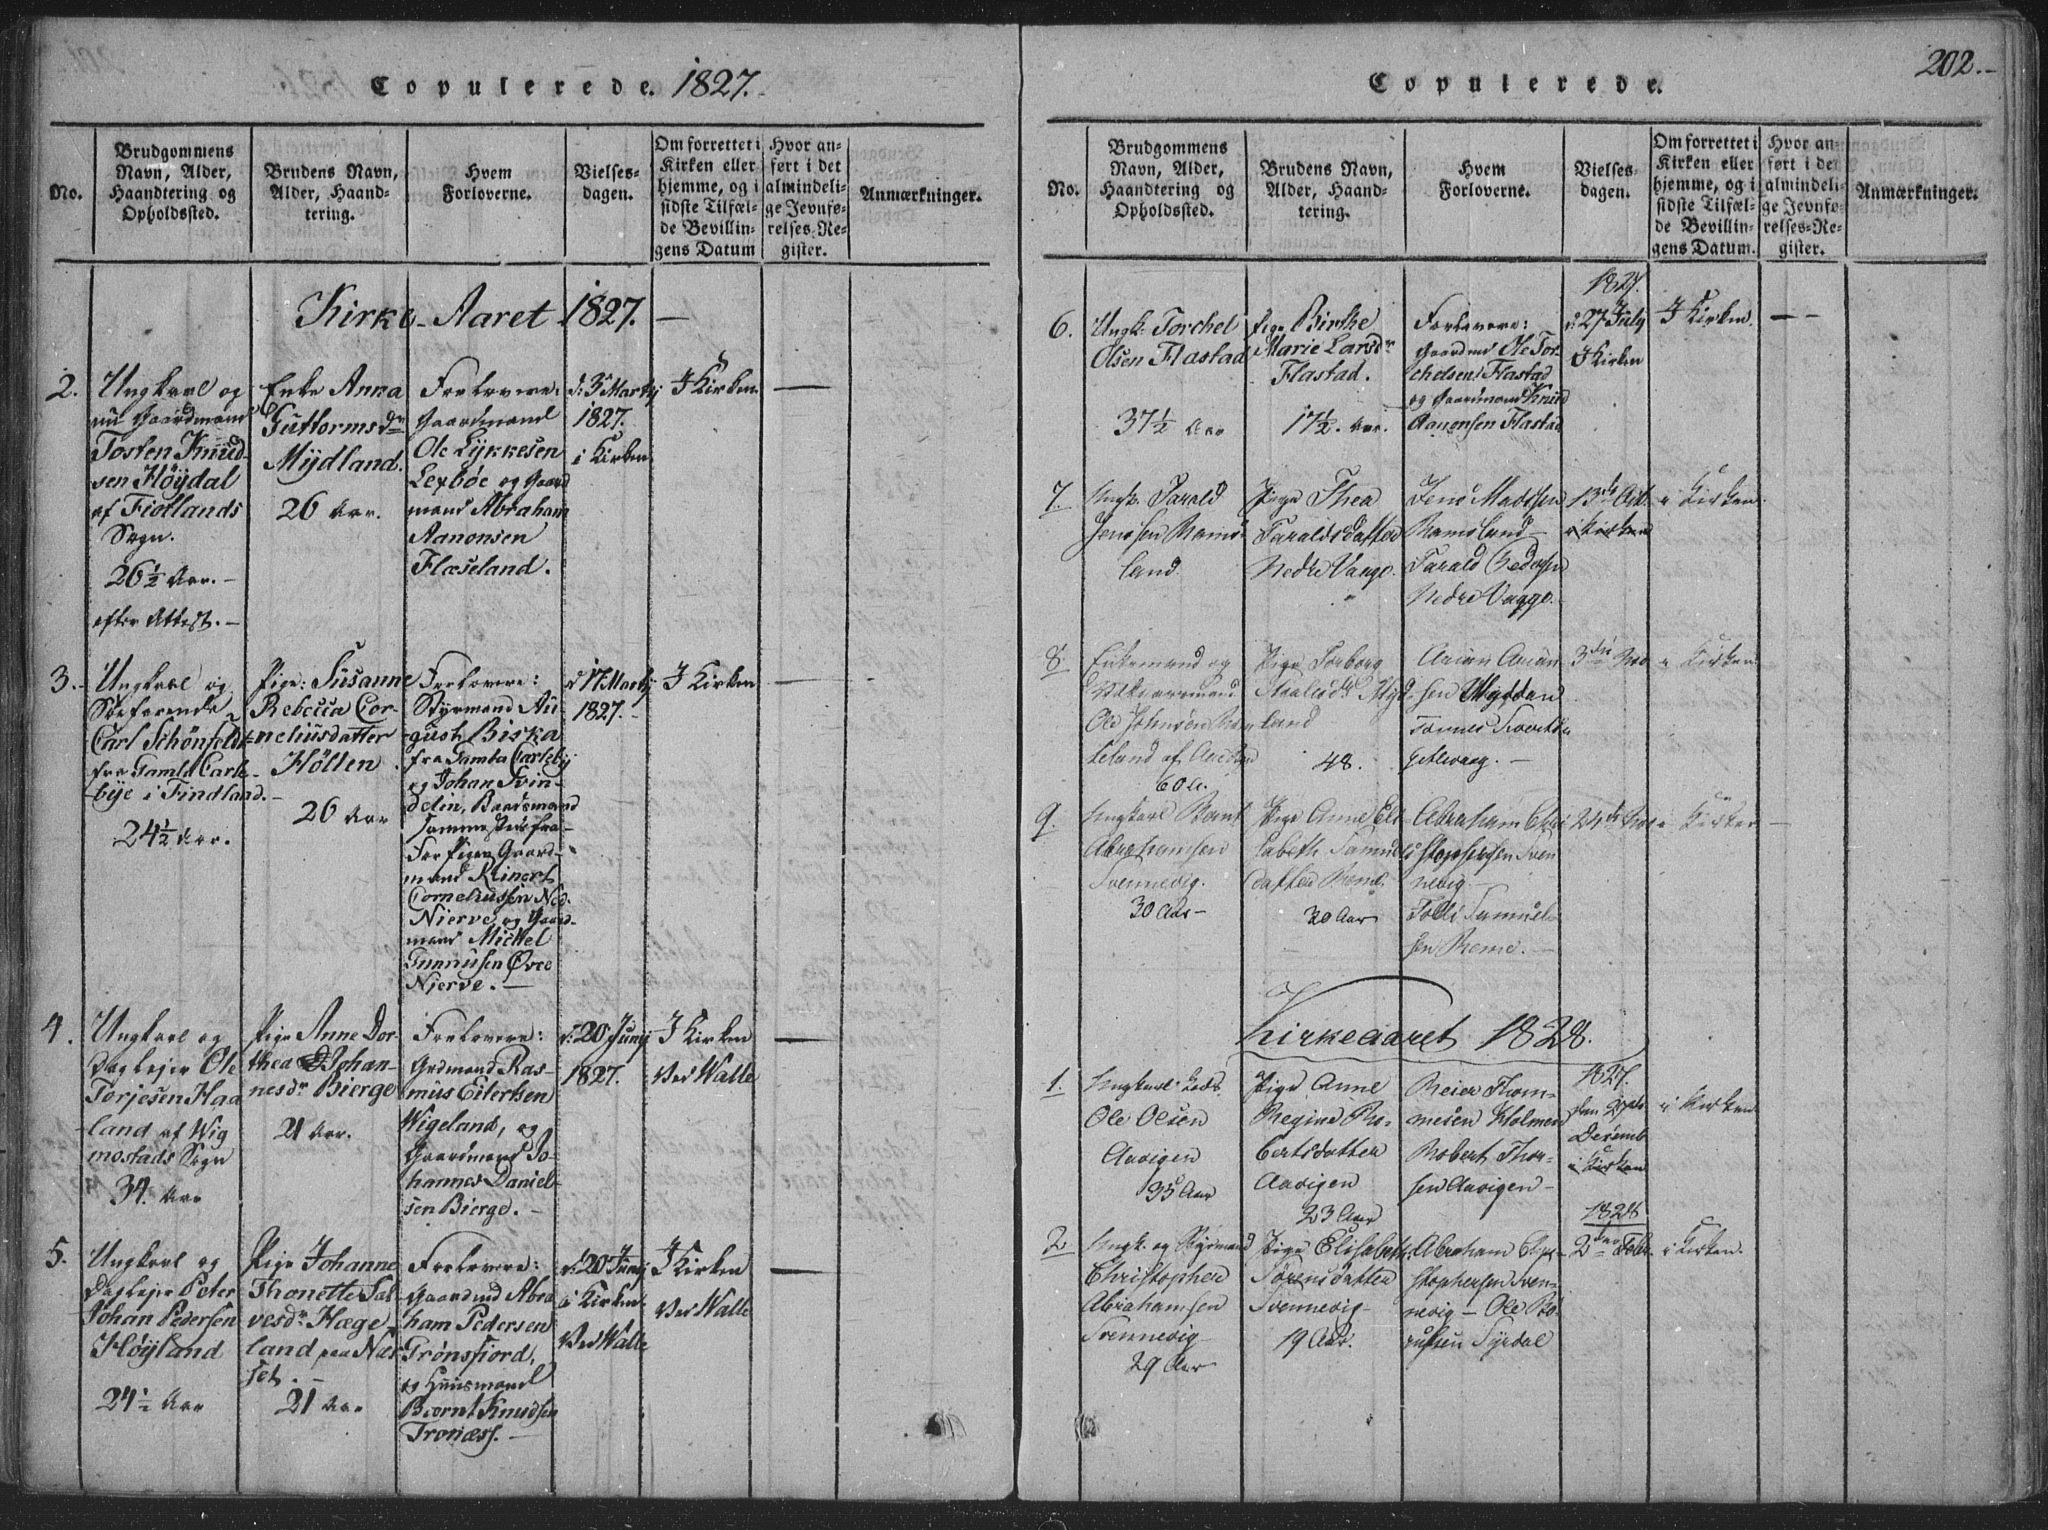 Copulerede. 1827.
No.
Brudgommens
Navn, Alder,
Haandtering og
Opholdssted.
Brudens Navn,
Alder, Haand-
tering.
Hvem
Forloverne.
Vielses-
dagen.
Om forrettet i
Kirken eller
hjemme, og i
sidste Tilfæl-
de Bevillin-
gens Datum
Hvor an-
ført i det
almindeli-
ge Jevnfø-
relses-Re-
gister.
Anmærkninger.
Kirke-Aaret 1827. —
2.
Ungkarl og
nu Gaardmand
Tosten Knud-
sen Höydal
af Fiotlands
Sogn.
26½ Aar. —
efter Attest. —
Enke Anna
Guttormsdr
Mydland.
26 Aar.
Forlovere:
Gaardmand
Ole Lykkesen
Lexböe og Gaard
mand Abraham
Aanonsen
Flæseland.
d: 3 Martij
1827.
i Kirken
I Kirken.
—
3.
Ungkarl og
Söefarende
Carl Schönfeldt
fra Gamla Carle-
bye i Findland. —
24½ Aar.
Pige: Susanne
Rebecca Cor-
neliusdatter
Hölten
26 Aar
Forlovere:
Styrmand Au-
gust Biska
fra Gamla Carleby
og Johan Svin-
delin, Baadsmand
sammestedsfra —
For Pigen Gaard-
mand Reinert
Corneliussen Ned.
Njerve og Gaard-
mand Michel
Gunnusen Øvre
Njerve. —
d 17 Martij
1827. —
I Kirken
—
4.
Ungkarl og
Daglejer Ole
Torjesen Haa
land af Wig
mostads Sogn
34. Aar
Pige Anne Dor-
thea Johan-
nesdr Bierge
21 Aar.
Forlovere:
Grdmand Ras-
mus Eilertsen
Wigeland, og
Gaardmand Jo-
hannes Daniel-
sen Bierge. —
d: 20 Junij
1827.
I Kirken
Ved Walle
—
5.
Ungkarl og
Daglejer Peter
Johan Pedersen
Höyland
24½ Aar
Pige Johanne
Thonette Sal-
vesdr Hæge
land paa Næs
set. —
21 Aar
Forlovere:
Gaardmd Abra
ham Pedersen
Trönsfiord,
og Huusmand
Biørnt Knudsen
Tronæss. —
d: 20 Junij
i Kirken
Ved Walle
I Kirken
Ved Walle
—
202. —
Copulerede.
No.
Brudgommens
Navn, Alder,
Haandtering og
Opholdssted.
Brudens Navn,
Alder, Haand-
tering.
Hvem
Forloverne.
Vielses-
dagen.
Om forrettet i
Kirken eller
hjemme, og i
sidste Tilfæl-
de Bevillin-
gens Datum.
Hvor an-
ført i det
almindeli-
ge Jevnfø-
relses-Re-
gister.
Anmærkninger.
6.
Ungk. Torchel
Olsen Flastad
37½ Aar
Pige Birthe
Marie Larsdr
Flastad.
17½. Aar.
Forlovere:
Gaardmd Ole Tor-
chelsen Flastad
og Gaardmand Knud
Aanonsen Flastad
1827.
d: 27 July
I Kirken
I Kirken.
— —
7.
Ungk. Tarald
Jenssen Rams-
land.
Pige Thea
Taraldsdatter
Nedre Vange.
Jens Madssen
Ramsland
Tarald Pedersen
Nedre Vagge. —
13de Oct.
i Kirken
i Kirken.
8
Enkemand og
Ole Johnsen
60
Pige Torborg
land
48.
Arian Arian
sen
3die Nov
i Kirken
9.
Ungkarl Bernt
Abrahamsen
Svennevig.
30 Aar —
Pige Anne Eli-
sabeth Samuels
datter Reme.
30 Aar
Abraham Chri
stophersen Sven
nevig. —
Tolli Samuel-
sen Reme. —
24de Nov
i Kirken
—
Kirkeaaret 1828.
1.
Ungkarl
Ole Olsen
Aavigen
35 Aar
Pige Anne
Regine Ro-
bertsdatter
Aavigen
23 Aar
Reier Thom-
mesen Holmen
Robert Thor-
sen Aavigen —
1827.
den 27de
Decemb
i Kirken
i Kirken
2
Ungk. og Styrmand
Christopher
Abrahamsen
Svennevig
29 Aar
Pige Elisabeth
Sörensdatter
Svennevig
19 Aar.
Abraham Chri-
stophersen Sven-
nevig — Ole Bö-
Syrdal
1828
2den Febr.
i Kirken.